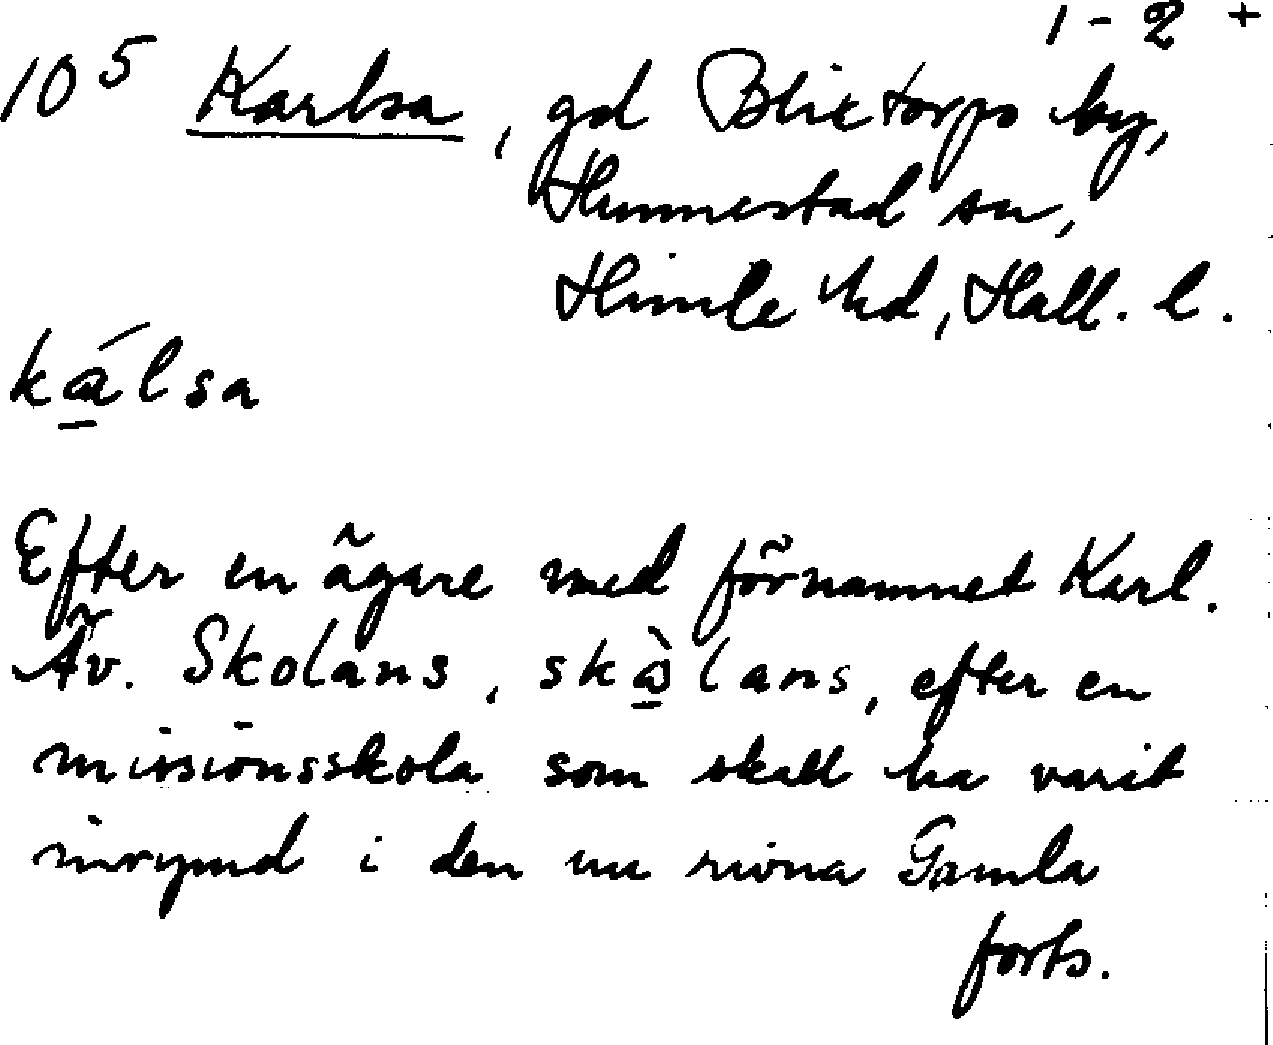 1 - 2 +
10⁵ Karlsa, gd Blixtorps by,
Hunnestad sn,
Himle hd, Hall. l.
ká̱lsa
Efter en ägare med förnamnet Karl.
Äv. Skolans, skà̱lans, efter en
missionsskola som skall ha varit
inrymd i den nu rivna Gamla
forts.